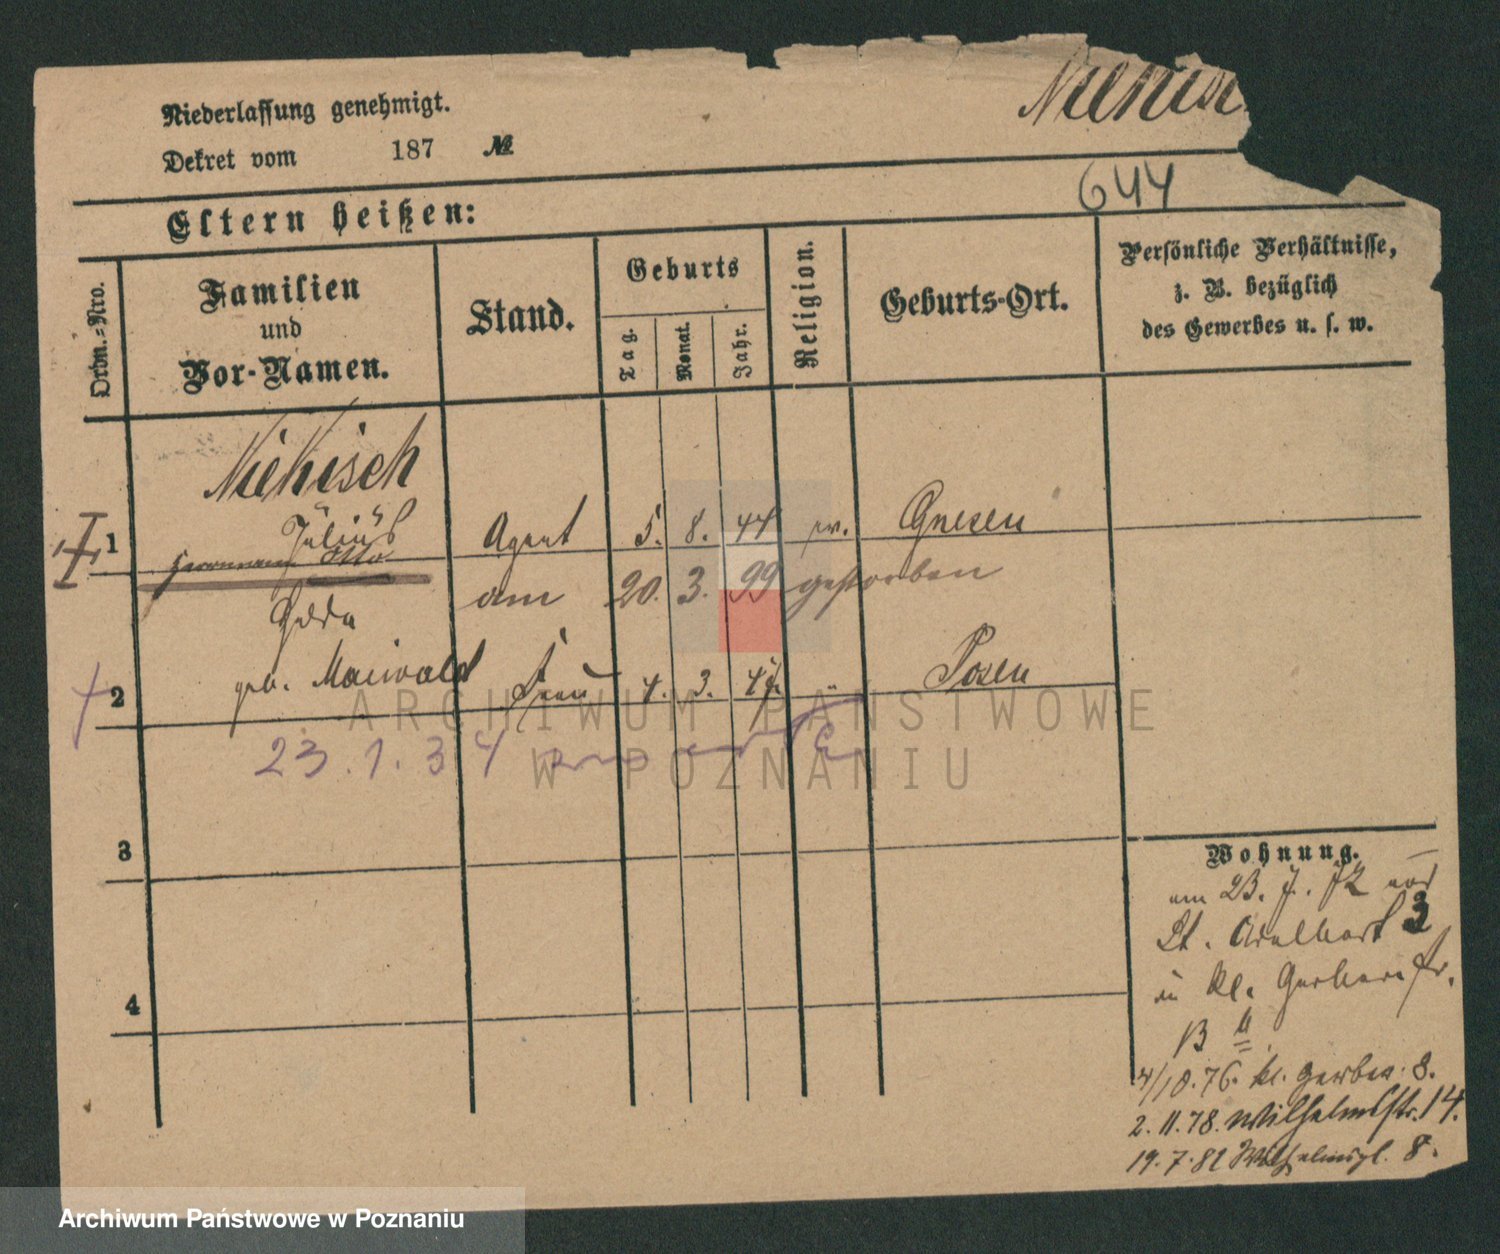 Niekisch
Niederlassung genehmigt.
Dekret vom 187 №
644
Eltern heißen:
Ordn.=Nro.
Familien
und
Vor-Namen.
Stand.
Geburts
Tag.
Monat.
Jahr.
Religion.
Geburts-Ort.
Persönliche Verhältnisse,
z. B. bezüglich
des Gewerbes u. s. w.
Niekisch
Julius
1 Herrmann Otto Agent 5. 8. 44 ev. Gnesen
am 20. 3. 99 gestorben
2 geb. Maiwald Frau 4. 3. 47. " Posen
23.1.34
3
4
Wohnung.
am 23. 7. 72 von
St. Adalbert 3
in kl. Gerberstr.
4/10.76. kl. Gerber. 8.
2.11.78. Wilhelmstr. 14.
19.7.82 Wilhelmspl. 8.
ARCHIWUM PAŃSTWOWE
W POZNANIU
Archiwum Państwowe w Poznaniu